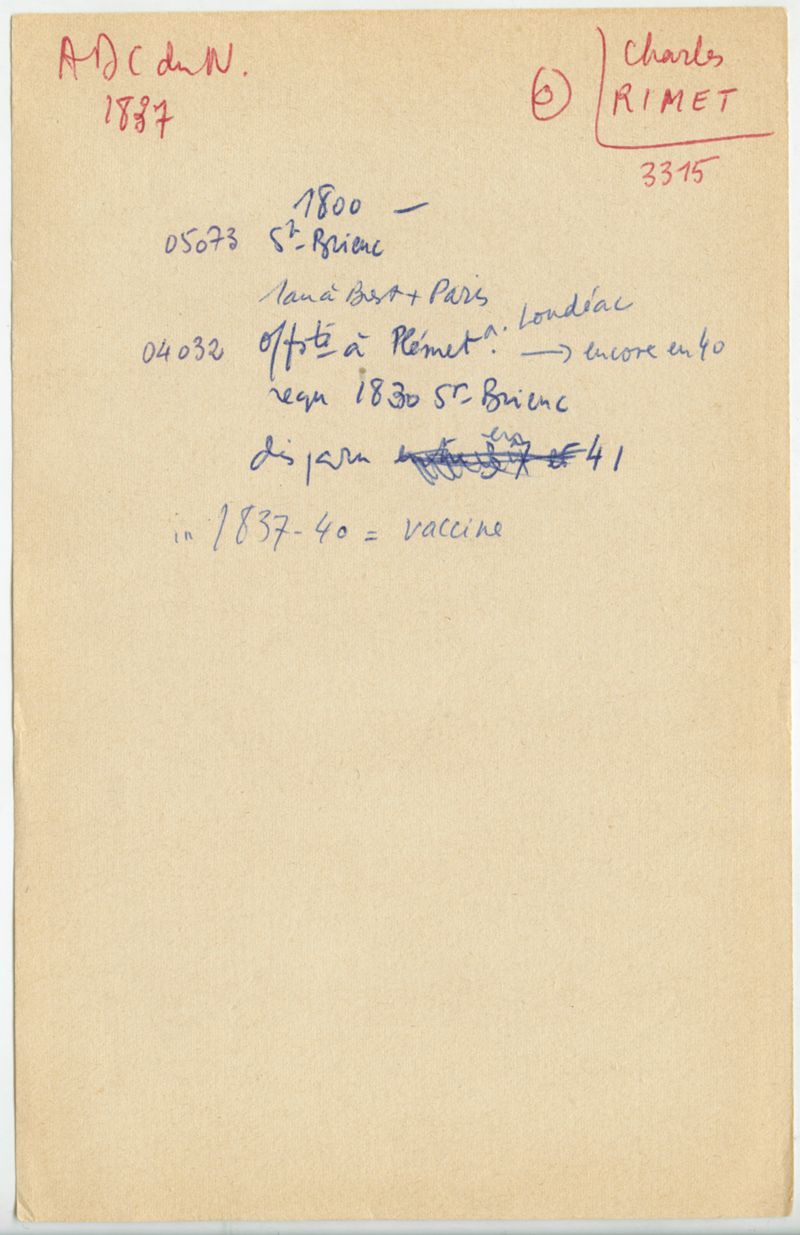 A D C du N.
1837
Charles
RIMET
3315
1800 —
05073 St-Brieuc
à Brest + Paris
04032 offsté à Plémet a. Loudéac → encore en 40
reçu 1830 St-Brieuc
disparu en 41
in 1837-40 = vaccine